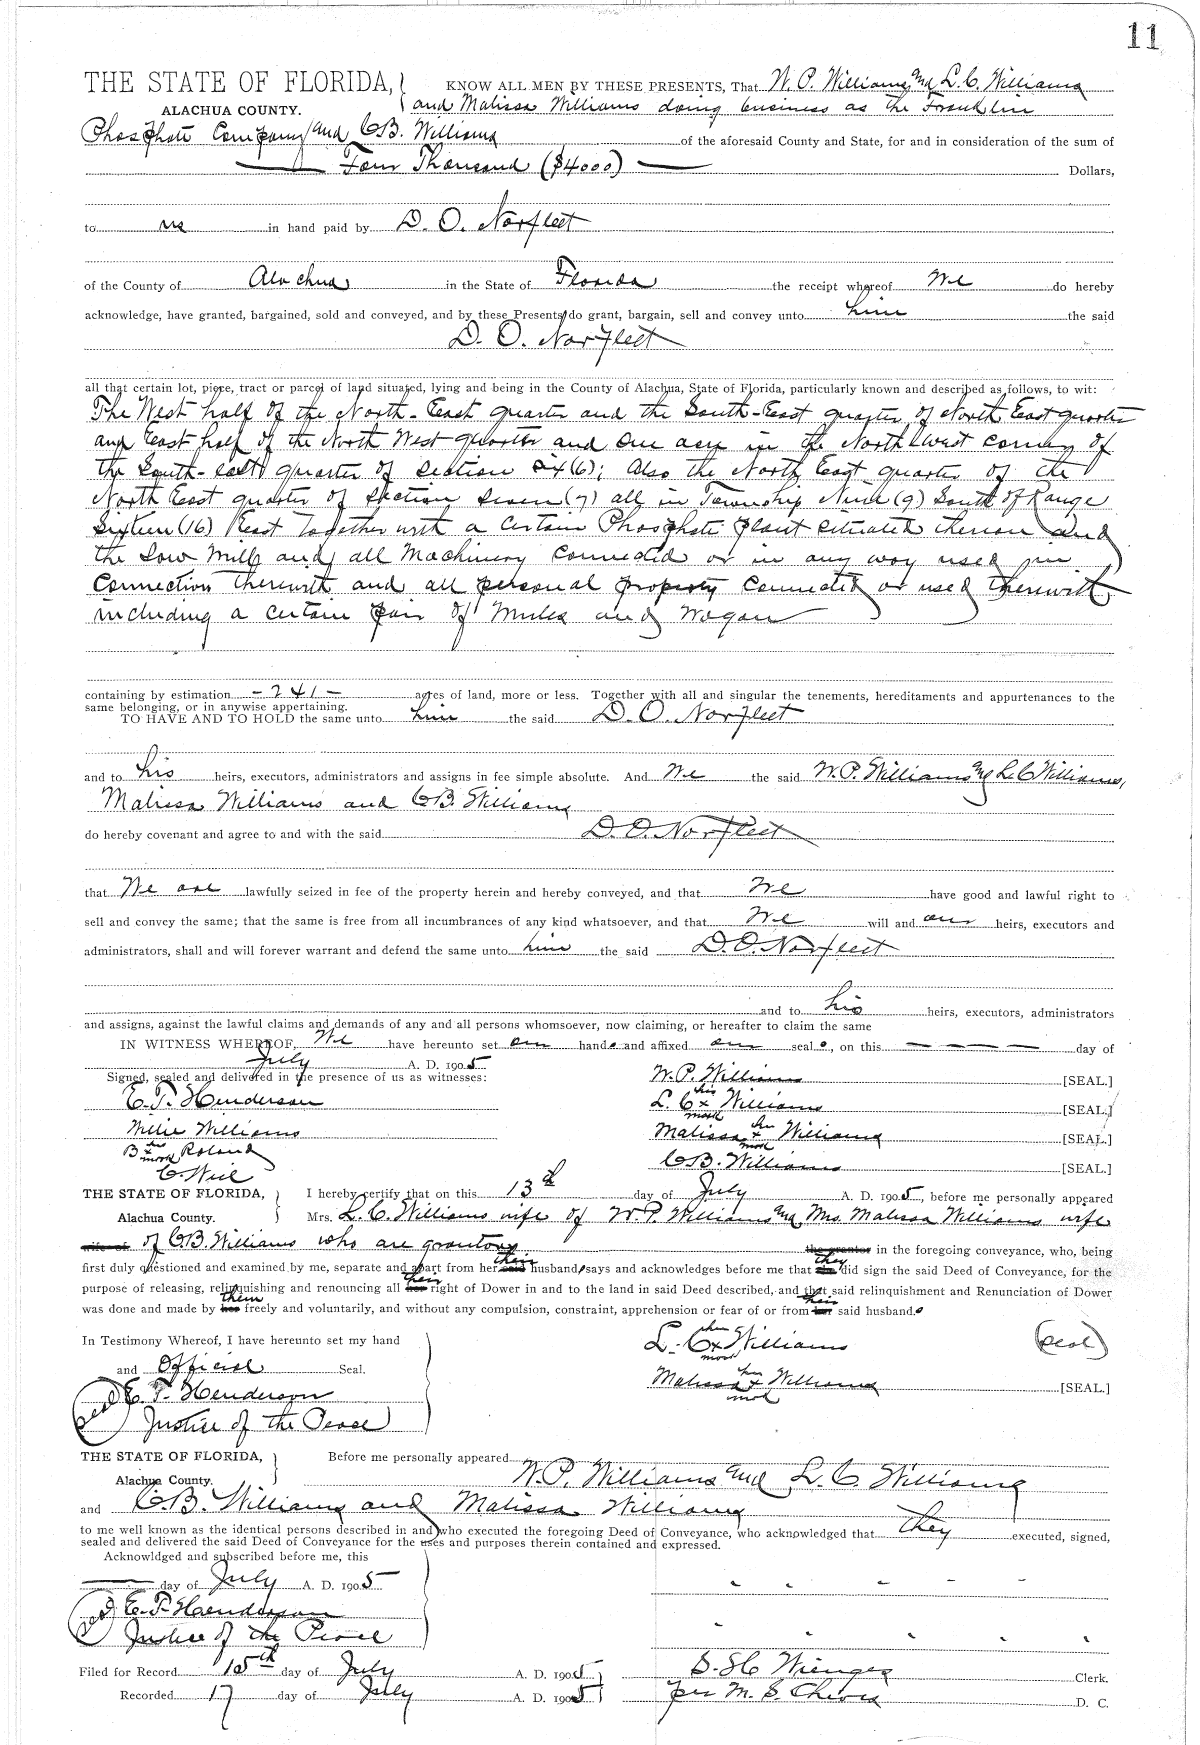 11
THE STATE OF FLORIDA, KNOW ALL MEN BY THESE PRESENTS, That W. P. Williams and L. C. Williams
ALACHUA COUNTY. and Malissa Williams doing business as the Franklin
Phosphate Company and C B. Williams of the aforesaid County and State, for and in consideration of the sum of
Four Thousand ($4000) Dollars,
to us in hand paid by D. O. Norfleet
of the County of Alachua in the State of Florida the receipt whereof We do hereby
acknowledge, have granted, bargained, sold and conveyed, and by these Presents do grant, bargain, sell and convey unto him the said
D. O. Norfleet
all that certain lot, piece, tract or parcel of land situated, lying and being in the County of Alachua, State of Florida, particularly known and described as follows, to wit:
The West half of the North-East quarter and the South-East quarter of North East quarter
and East half of the North West quarter and one acre in the North West corner of
the South-east quarter of section six (6); Also the North East quarter of the
North East quarter of section seven (7) all in Township Nine (9) South of Range
Sixteen (16) East together with a certain Phosphate plant situated thereon and
the Saw Mill and all Machinery connected or in any way used in
connection therewith and all personal property connected or used therewith
including a certain pair of Mules and Wagon
containing by estimation -241- acres of land, more or less. Together with all and singular the tenements, hereditaments and appurtenances to the
same belonging, or in anywise appertaining.
TO HAVE AND TO HOLD the same unto him the said D. O. Norfleet
and to his heirs, executors, administrators and assigns in fee simple absolute. And We the said W. P. Williams and L. C Williams,
Malissa Williams and C B. Williams
do hereby covenant and agree to and with the said D. O. Norfleet
that We are lawfully seized in fee of the property herein and hereby conveyed, and that We have good and lawful right to
sell and convey the same; that the same is free from all incumbrances of any kind whatsoever, and that We will and our heirs, executors and
administrators, shall and will forever warrant and defend the same unto him the said D. O. Norfleet
and to his heirs, executors, administrators
and assigns, against the lawful claims and demands of any and all persons whomsoever, now claiming, or hereafter to claim the same
IN WITNESS WHEREOF, We have hereunto set our hands and affixed our seals, on this — — — — day of
July A. D. 1905
Signed, sealed and delivered in the presence of us as witnesses: W. P. Williams [SEAL.]
E. T. Henderson L. C his x mark Williams [SEAL.]
Willie Williams Malissa her x mark Williams [SEAL.]
B his x mark Roland C B. Williams [SEAL.]
C. Weil
THE STATE OF FLORIDA, I hereby certify that on this 13th day of July A. D. 1905, before me personally appeared
Alachua County. Mrs. L. C. Williams wife of W. P. Williams and Mrs. Malissa Williams wife
of C B. Williams who are grantors the grantor in the foregoing conveyance, who, being
first duly questioned and examined by me, separate and apart from her said their husbands, says and acknowledges before me that she they did sign the said Deed of Conveyance, for the
purpose of releasing, relinquishing and renouncing all her their right of Dower in and to the land in said Deed described, and that said relinquishment and Renunciation of Dower
was done and made by her them freely and voluntarily, and without any compulsion, constraint, apprehension or fear of or from her their said husbands.
In Testimony Whereof, I have hereunto set my hand L. C her x mark Williams (Seal)
and Official Seal.
(Seal) E. T. Henderson Malissa her x mark Williams [SEAL.]
Justice of the Peace
THE STATE OF FLORIDA, Before me personally appeared
Alachua County. W. P. Williams and L. C. Williams
and C. B. Williams and Malissa Williams
to me well known as the identical persons described in and who executed the foregoing Deed of Conveyance, who acknowledged that they executed, signed,
sealed and delivered the said Deed of Conveyance for the uses and purposes therein contained and expressed.
Acknowldged and subscribed before me, this
day of July A. D. 1905
(Seal) E. T. Henderson
Justice of the Peace
Filed for Record 15th day of July A. D. 1905 S. H. Wienges Clerk.
Recorded 17 day of July A. D. 1905 per M. S. Cheves D. C.